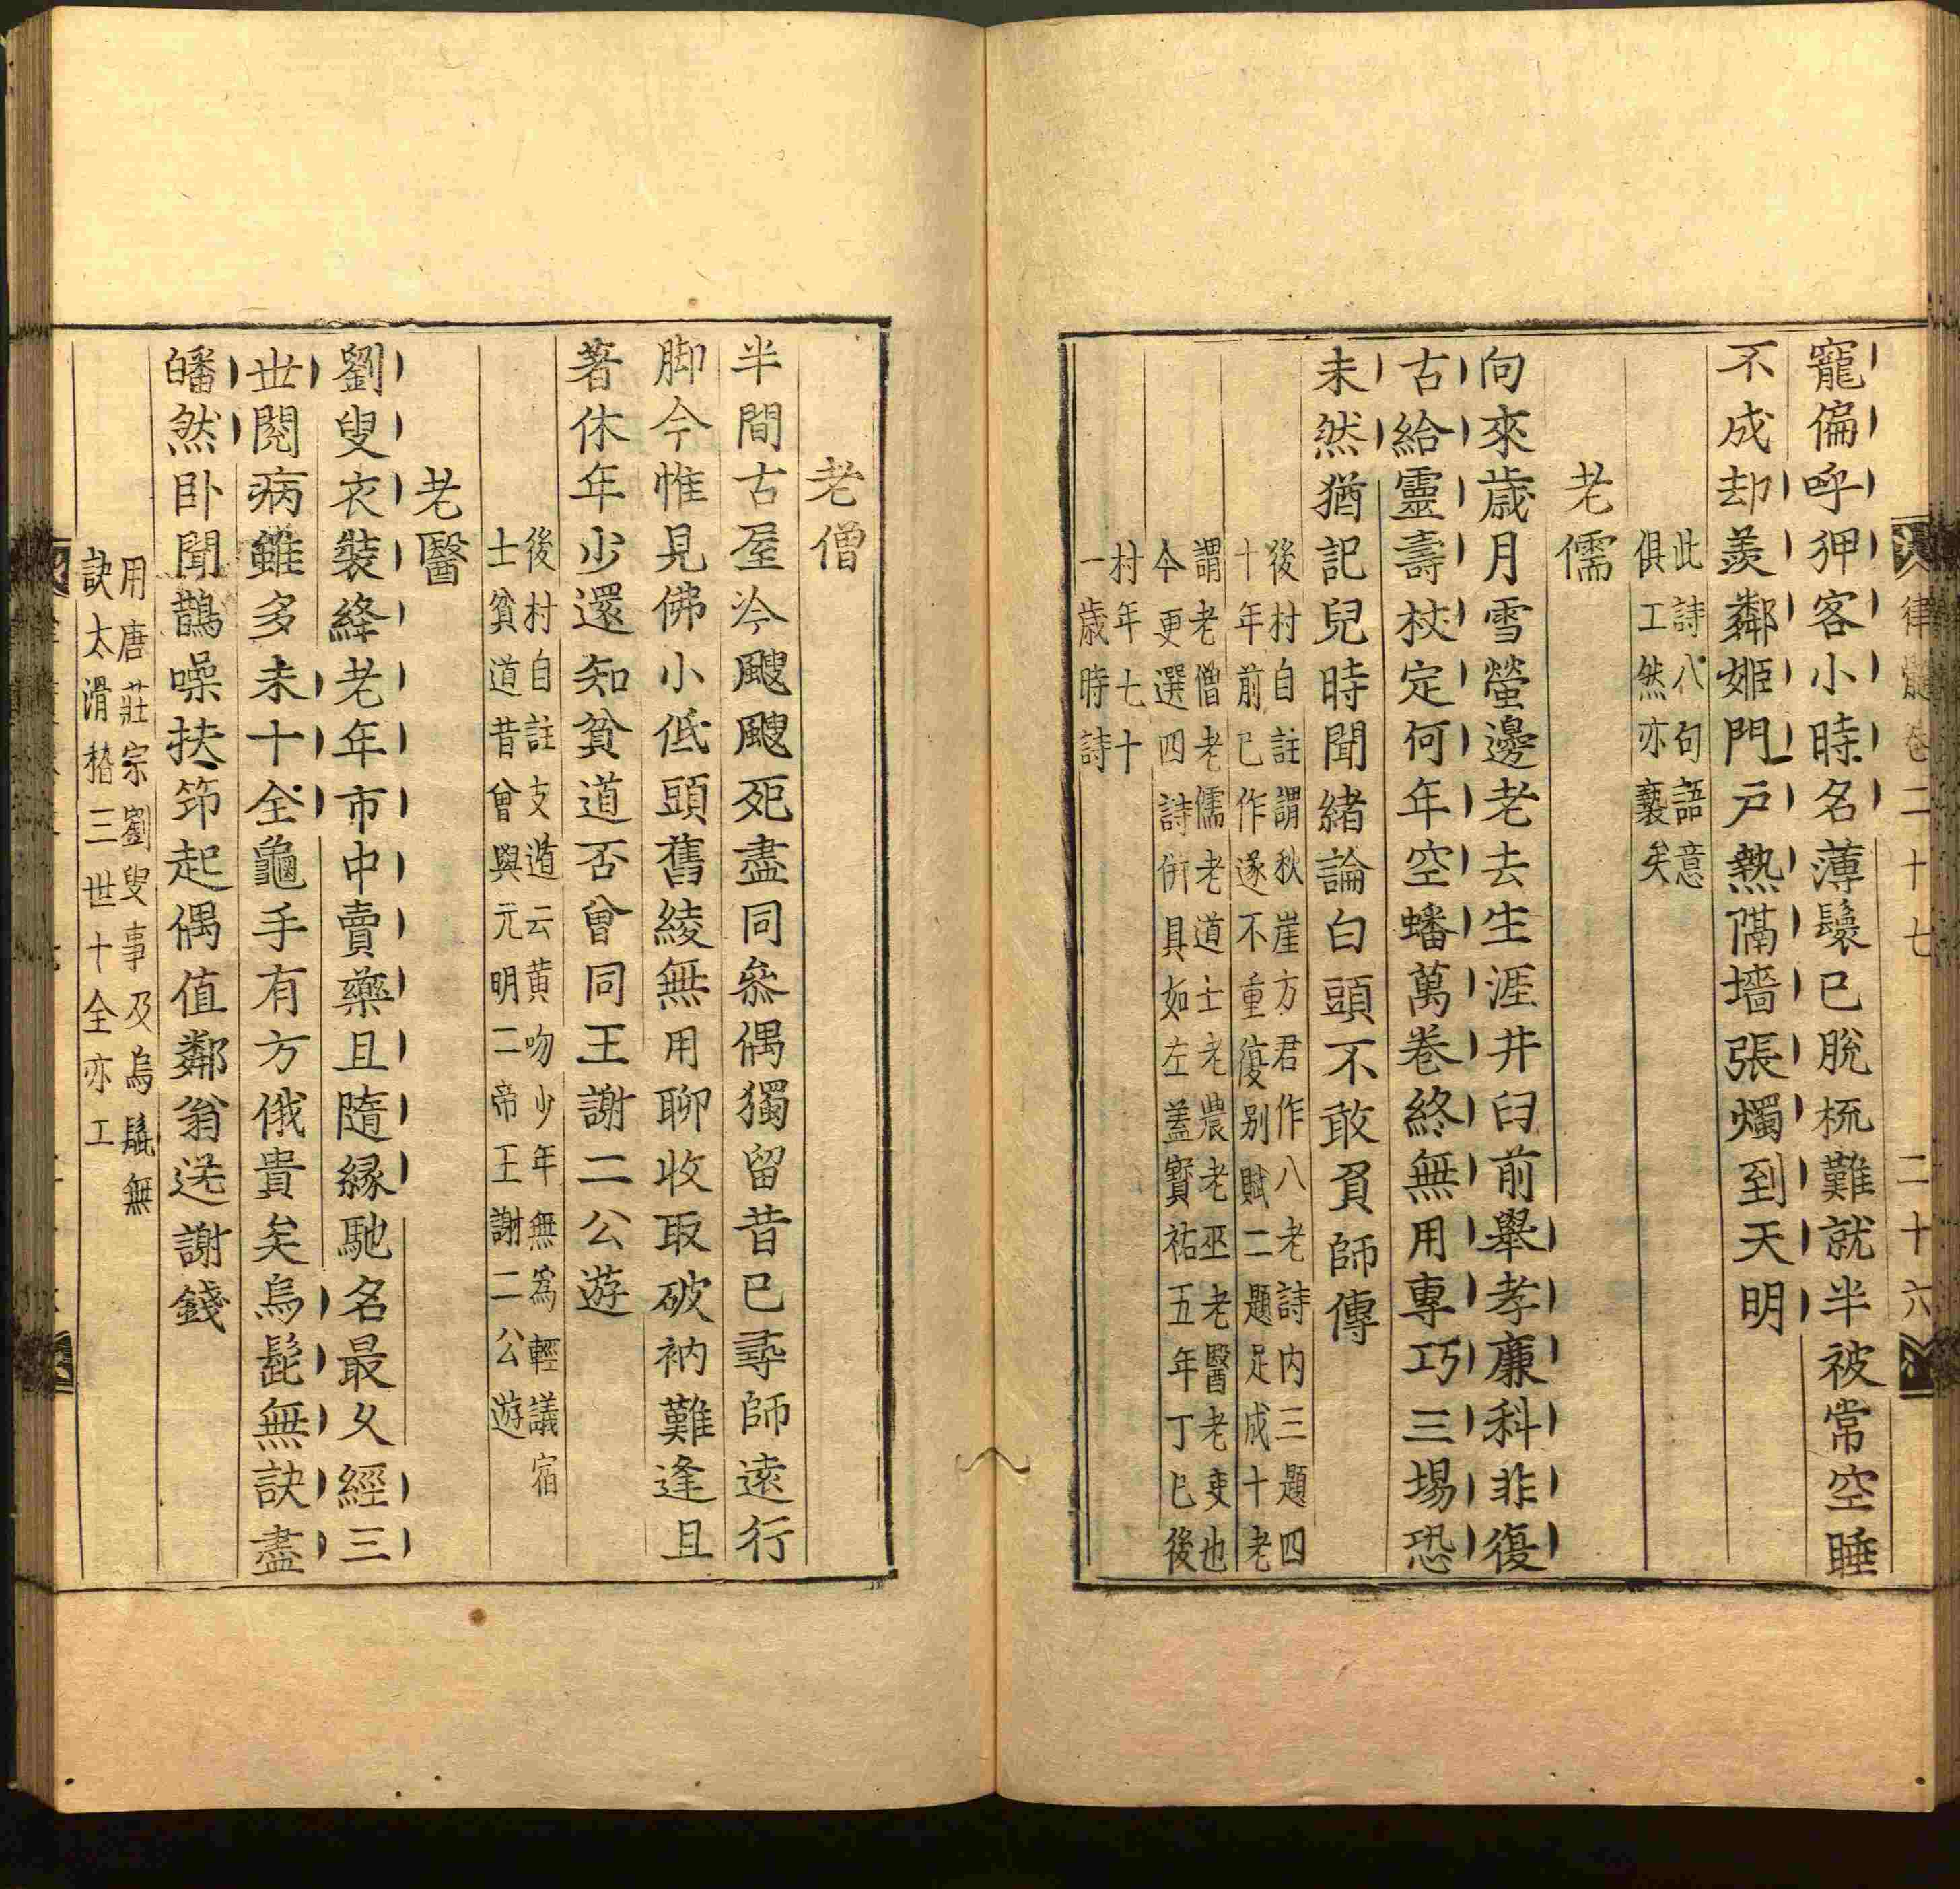 律髓卷二十七　二十六
寵偏呼狎客小時名薄鬟已脫梳難就半被常空睡
不成却羨鄰姬門戶熱隔墻張燭到天明
此詩八句語意
俱工然亦褻矣
老儒
向來歲月雪螢邊老去生涯井臼前舉孝廉科非復
古給靈壽杖定何年空蟠萬卷終無用專巧三場恐
未然猶記兒時聞緒論白頭不敢負師傳
後村自註謂秋崖方君作八老詩内三題四
十年前已作遂不重復别賦二題足成十老
謂老僧老儒老道士老農老巫老醫老吏也
今更選四詩併具如左蓋寶祐五年丁巳後
村年七十
一歲時詩
老僧
半間古屋冷颼颼死盡同叅偶獨留昔已尋師遠行
脚今惟見佛小低頭舊綾無用聊收取破衲難逢且
著休年少還知貧道否曾同王謝二公遊
後村自註支遁云黄吻少年無為輕議宿
士貧道昔曾與元明二帝王謝二公遊
老醫
劉叟衣裝絳老年市中賣藥且隨緣馳名最久經三
世閱病雖多未十全龜手有方俄貴矣烏髭無訣盡
皤然卧聞鵲噪扶筇起偶值鄰翁送謝錢
用唐莊宗劉叟事及烏髭無
訣太滑稽三世十全亦工